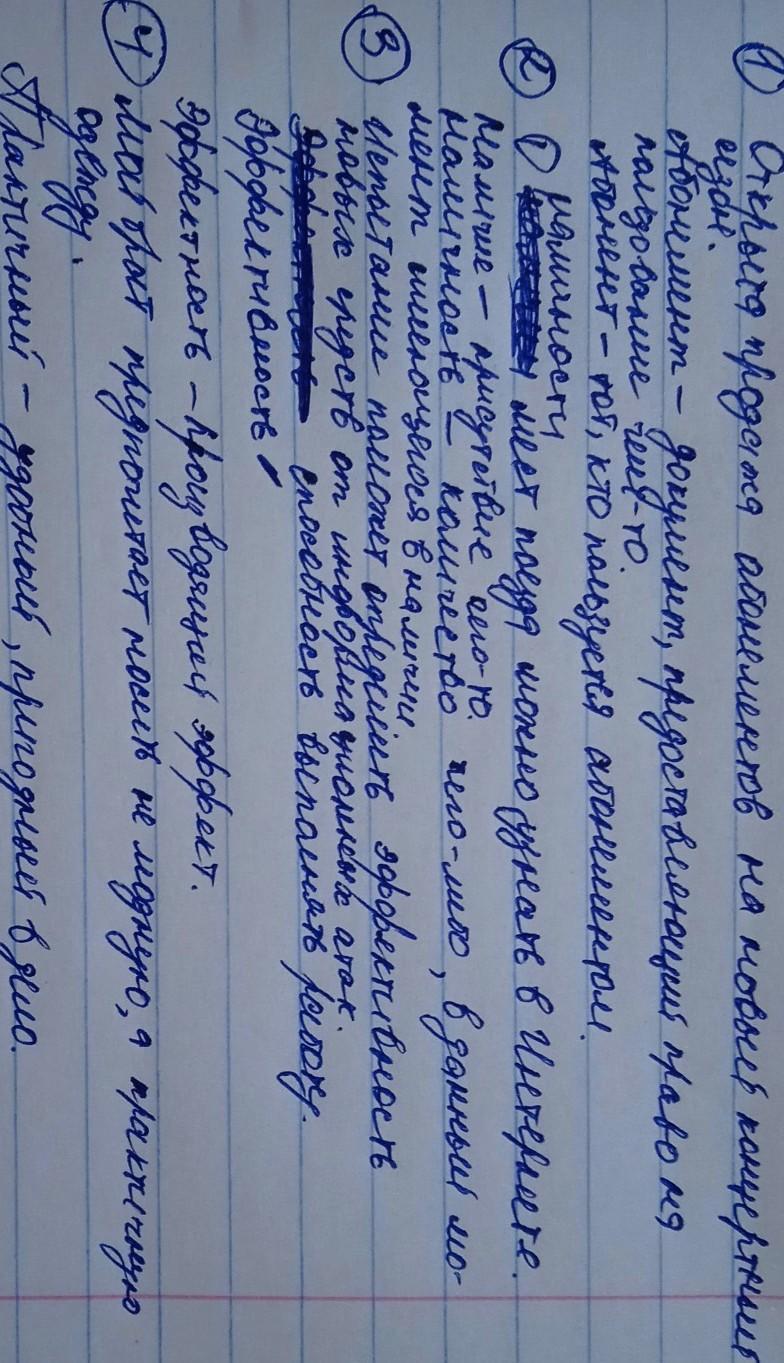 ① Открыта продажа абонементов на новый концертный
сезон.
Абонемент – документ, предоставляющий право на
пользование чем-то.
Абонент – тот, кто пользуется абонементом.
② О наличности мест поезда можно узнать в Интернете.
Наличие – присутствие чего-то.
Наличность – количество чего-либо, в данный мо-
мент имеющегося в наличии
③ Испытание поможет определить эффективность
новых средств от информационных атак.
способность выполнять работу.
Эффективность
Эффектность – производящий эффект.
④ Мой брат предпочитает носить не модную, а практичную
одежду.
Практичный – удобный, пригодный в дело.